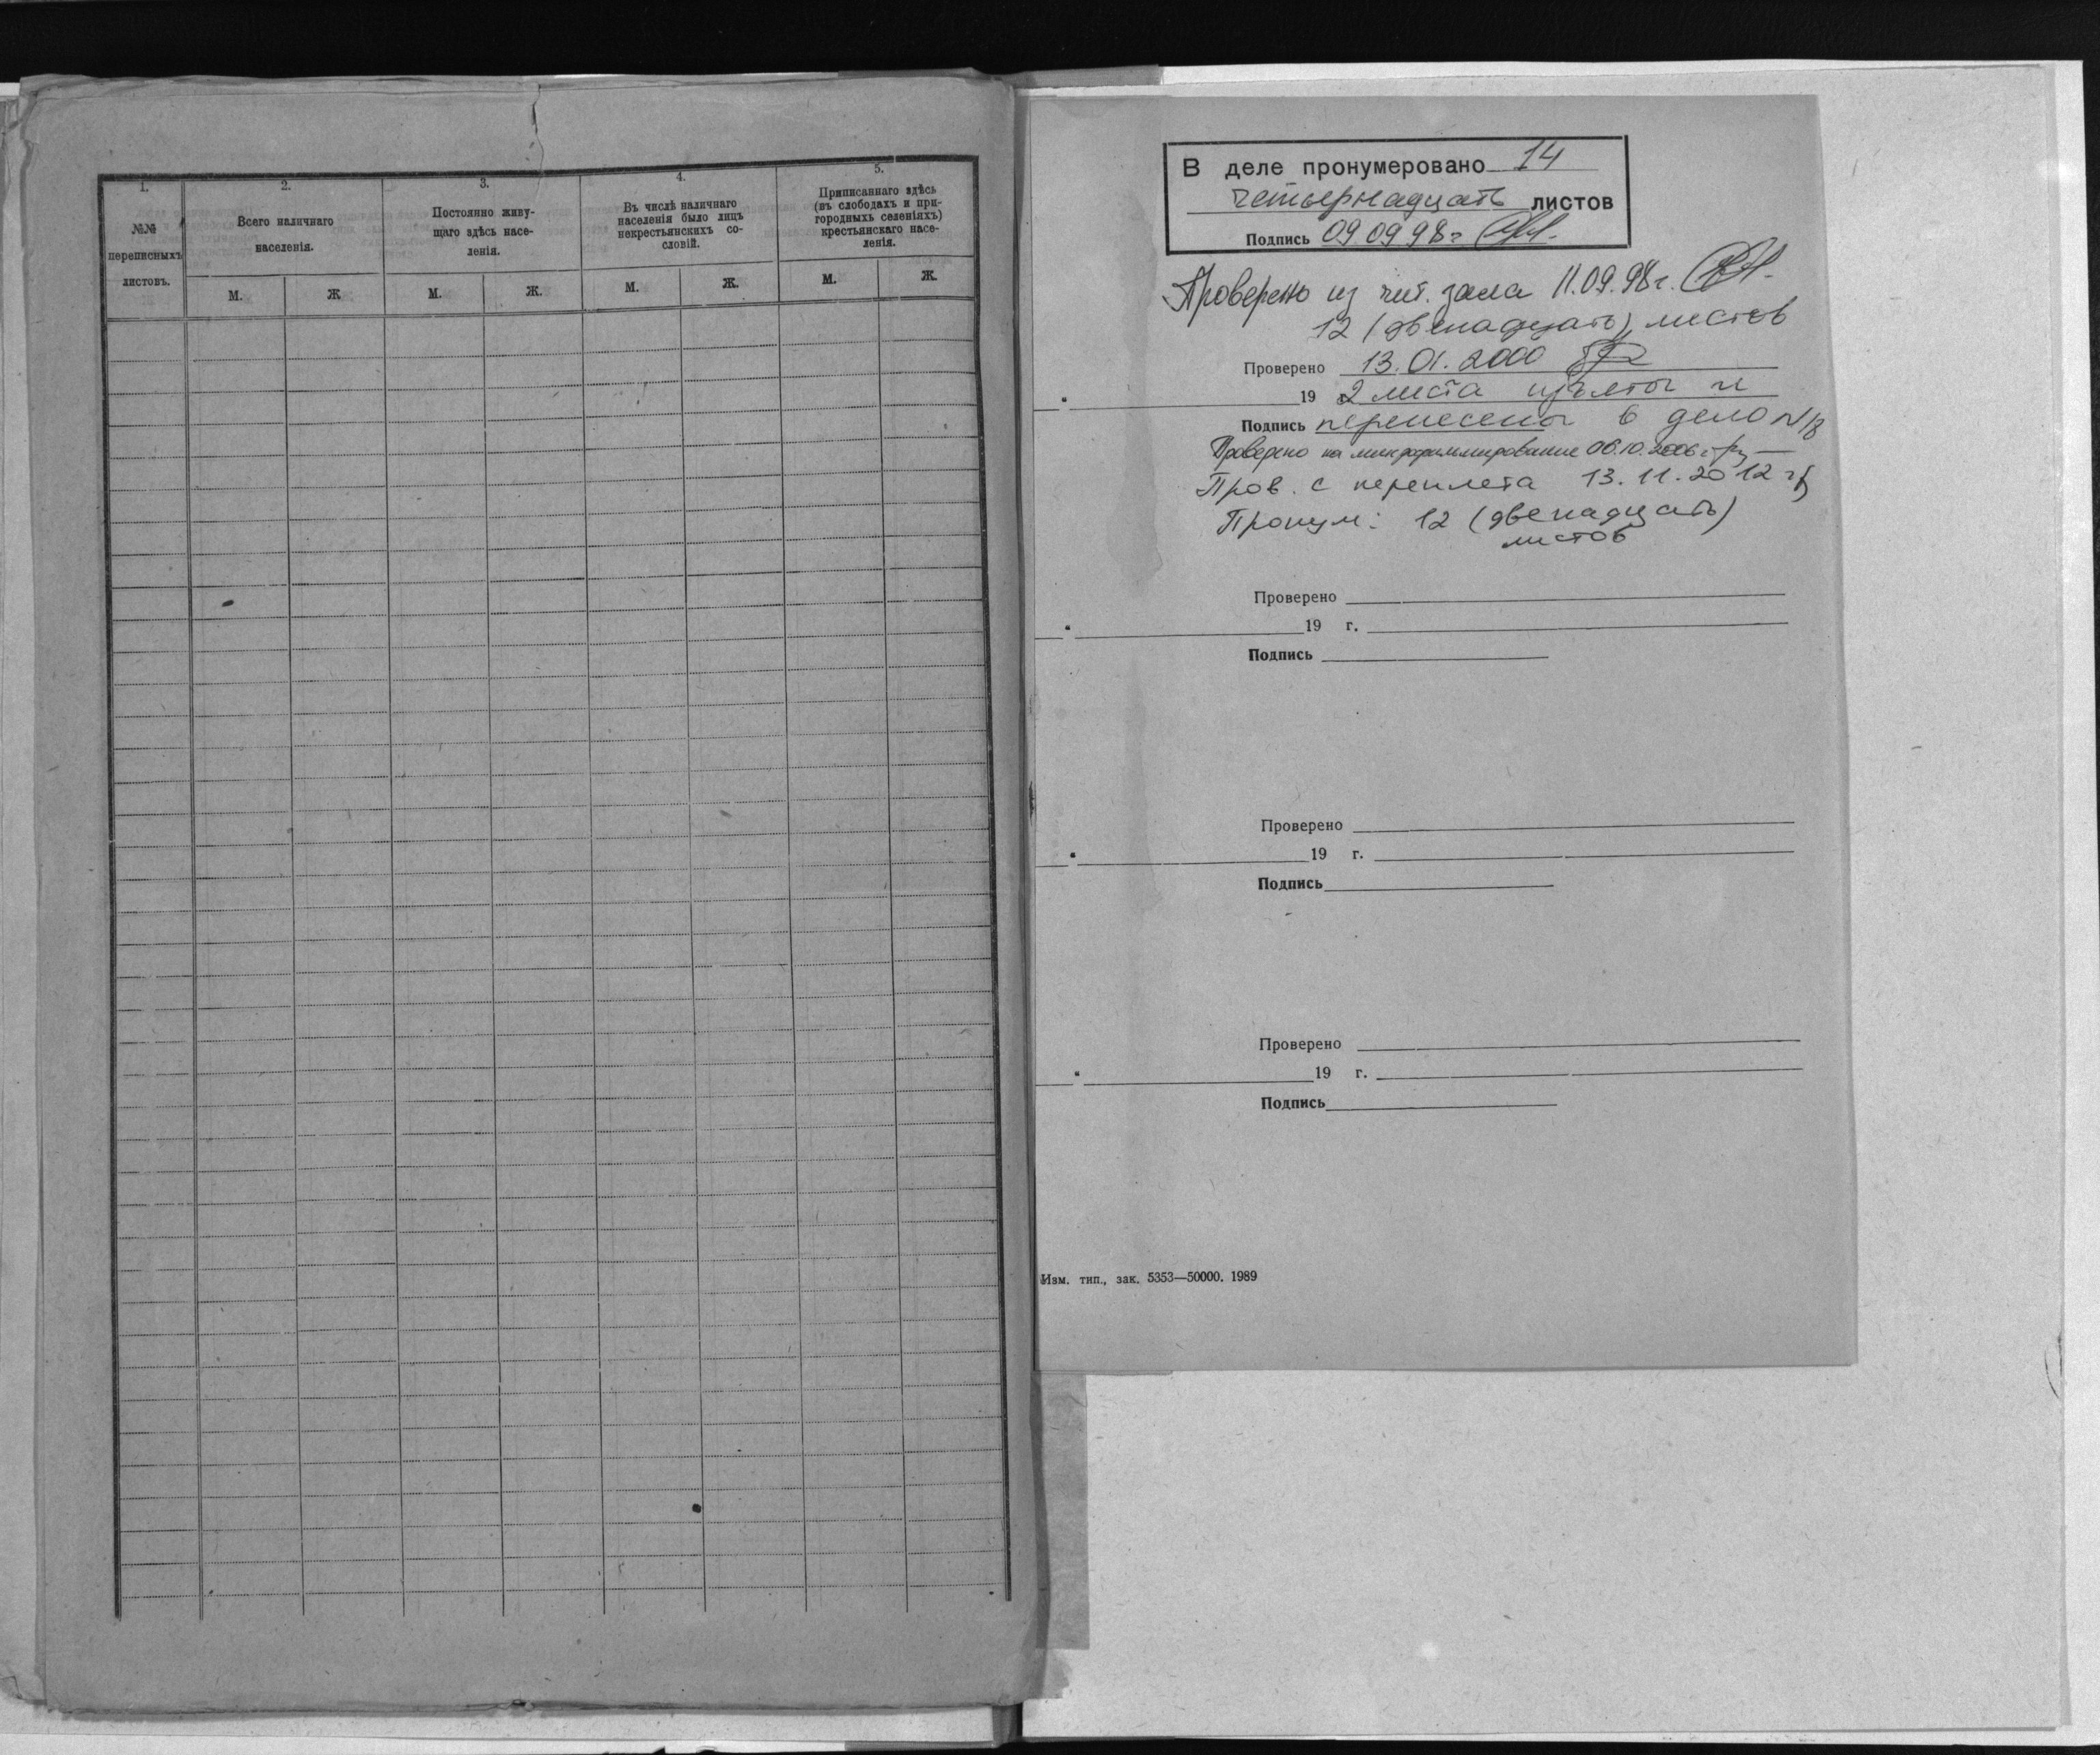 1.
№№
переписныхъ
листовъ.
2.
Всего наличнаго
населенія.
М.
Ж
3.
Постоянно живу-
щаго здѣсь насе-
ленія.
М.
Ж.
4.
Въ числѣ наличнаго
населенія было лицъ
некрестьянскихъ со-
словій.
М.
Ж.
5.
Приписаннаго здѣсь
(въ слободахъ и при-
городныхъ селеніяхъ)
крестьянскаго насе-
ленія.
М.
Ж.
В деле пронумеровано 14
четырнадцать листов
Подпись 09.09.98г
Проверено из чит. зала 11.09.98г.
12 (двенадцать) листов
Проверено 13.01.2000
19 2 листа изъяты и
Подпись перенесены в дело N18
Проверено на микрофильмирование 06.10.2006г
Пров. с переплета 13.11.2012г
Пронум: 12 (двенадцать)
листов
Проверено
19 г.
Подпись
Проверено
19 г.
Подпись
Проверено
19 г.
Подпись
Изм. тип., зак. 5353—50000. 1989